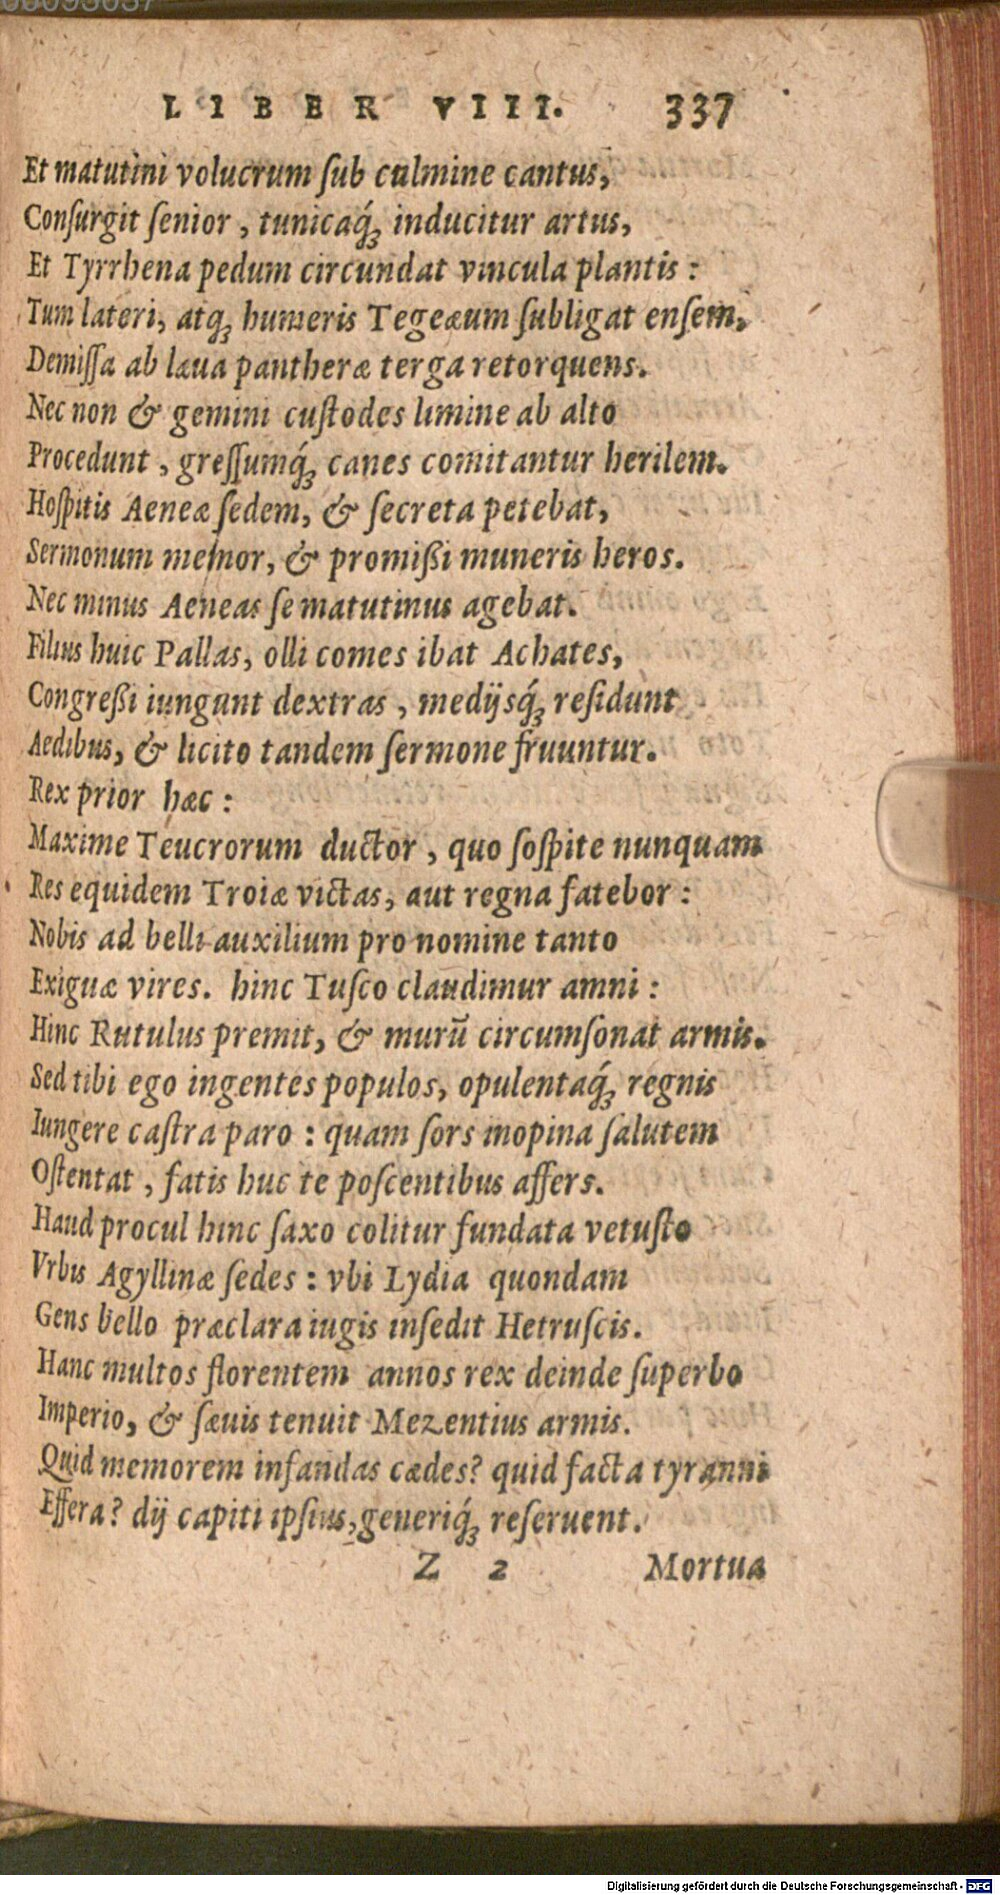 LIBER VIII. 337
Et matutini volucrum ſub culmine cantus,
Conſurgit ſenior, tunicaq́ꝫ inducitur artus,
Et Tyrrhena pedum circundat vincula plantis:
Tum lateri, atqꝫ humeris Tegeæum ſubligat enſem,
Demiſſa ab læua pantheræ terga retorquens.
Nec non & gemini cuſtodes limine ab alto
Procedunt, greſſumq́ꝫ canes comitantur herilem.
Hoſpitis Aeneæ ſedem, & ſecreta petebat,
Sermonum memor, & promißi muneris heros.
Nec minus Aeneas ſe matutinus agebat.
Filius huic Pallas, olli comes ibat Achates,
Congreßi iungunt dextras, medijsq́ꝫ reſidunt
Aedibus, & licito tandem ſermone fruuntur.
Rex prior hæc:
Maxime Teucrorum ductor, quo ſoſpite nunquam
Res equidem Troiæ victas, aut regna fatebor:
Nobis ad belli auxilium pro nomine tanto
Exiguæ vires. hinc Tuſco claudimur amni:
Hinc Rutulus premit, & murū circumſonat armis.
Sed tibi ego ingentes populos, opulentaq́ꝫ regnis
Iungere caſtra paro: quam ſors inopina ſalutem
Oſtentat, fatis huc te poſcentibus affers.
Haud procul hinc ſaxo colitur fundata vetuſto
Vrbis Agyllinæ ſedes: vbi Lydia quondam
Gens bello præclara iugis inſedit Hetruſcis.
Hanc multos florentem annos rex deinde ſuperbo
Imperio, & ſæuis tenuit Mezentius armis.
Quid memorem infandas cædes? quid facta tyranni
Effera? dij capiti ipſius, generiq́ꝫ reſeruent.
Z 2 Mortua
Digitalisierung gefördert durch die Deutsche Forschungsgemeinschaft - DFG